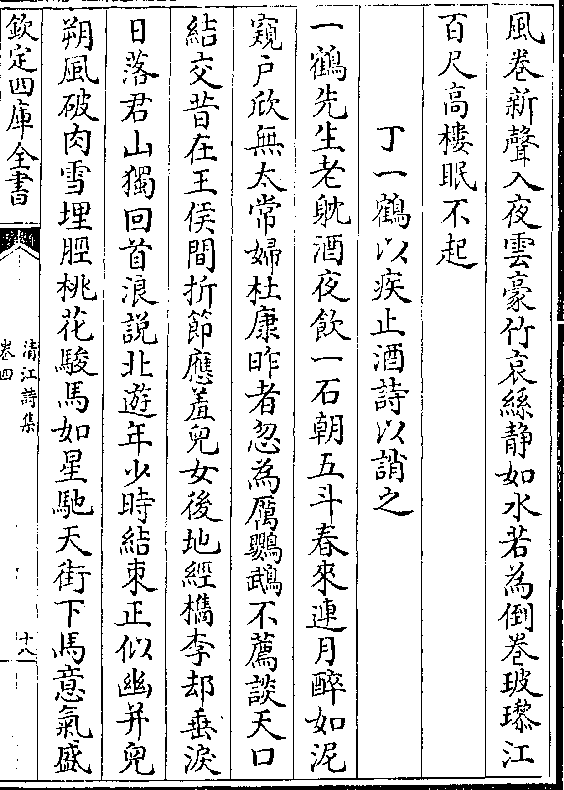 風卷新聲入夜雲豪竹哀絲静如水若為倒卷玻瓈江
百尺高樓眠不起
丁一鶴以疾止酒詩以誚之
一鶴先生老躭酒夜飲一石朝五斗春來連月醉如泥
窺户欣無太常婦杜康昨者忽為厲鸚鵡不薦談天口
結交昔在王侯間折節應羞兒女後地經檇李却垂淚
日落君山獨回首浪説北遊年少時結束正似幽并兒
朔風破肉雪埋脛桃花駿馬如星馳天街下馬意氣盛
欽定四庫全書
清江詩集
卷四
十八